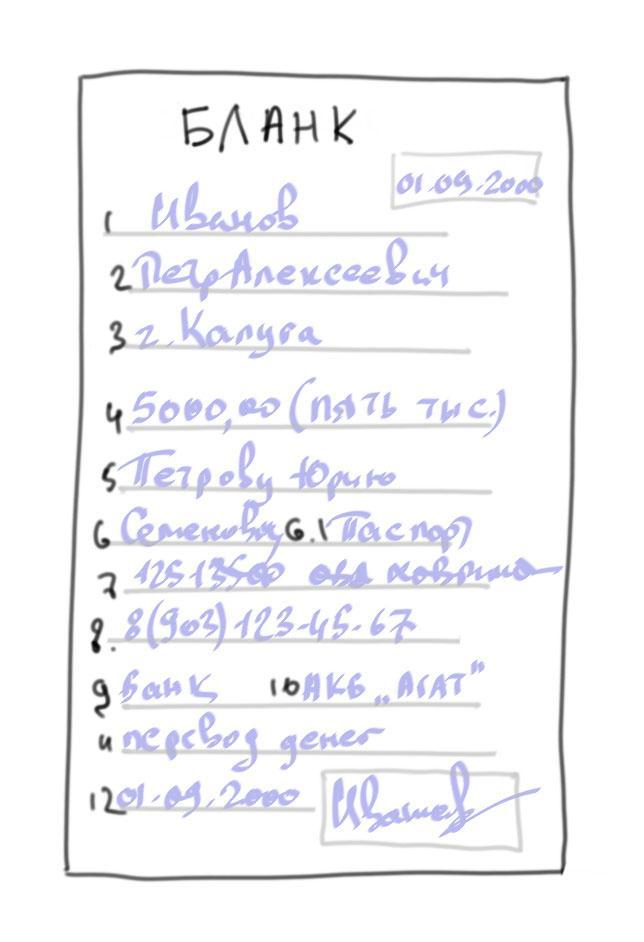 БЛАНК
01.09.2000
1 Иванов
2 Петр Алексеевич
3 г. Калуга
4 5000,00 (пять тыс.)
5 Петрову Юрию
6 Семеновичу 6.1 Паспорт
7 12513500 овд
8. 8(903)123-45-67
9 банк 10 АКБ „АГАТ"
11 перевод денег
12 01.09.2000